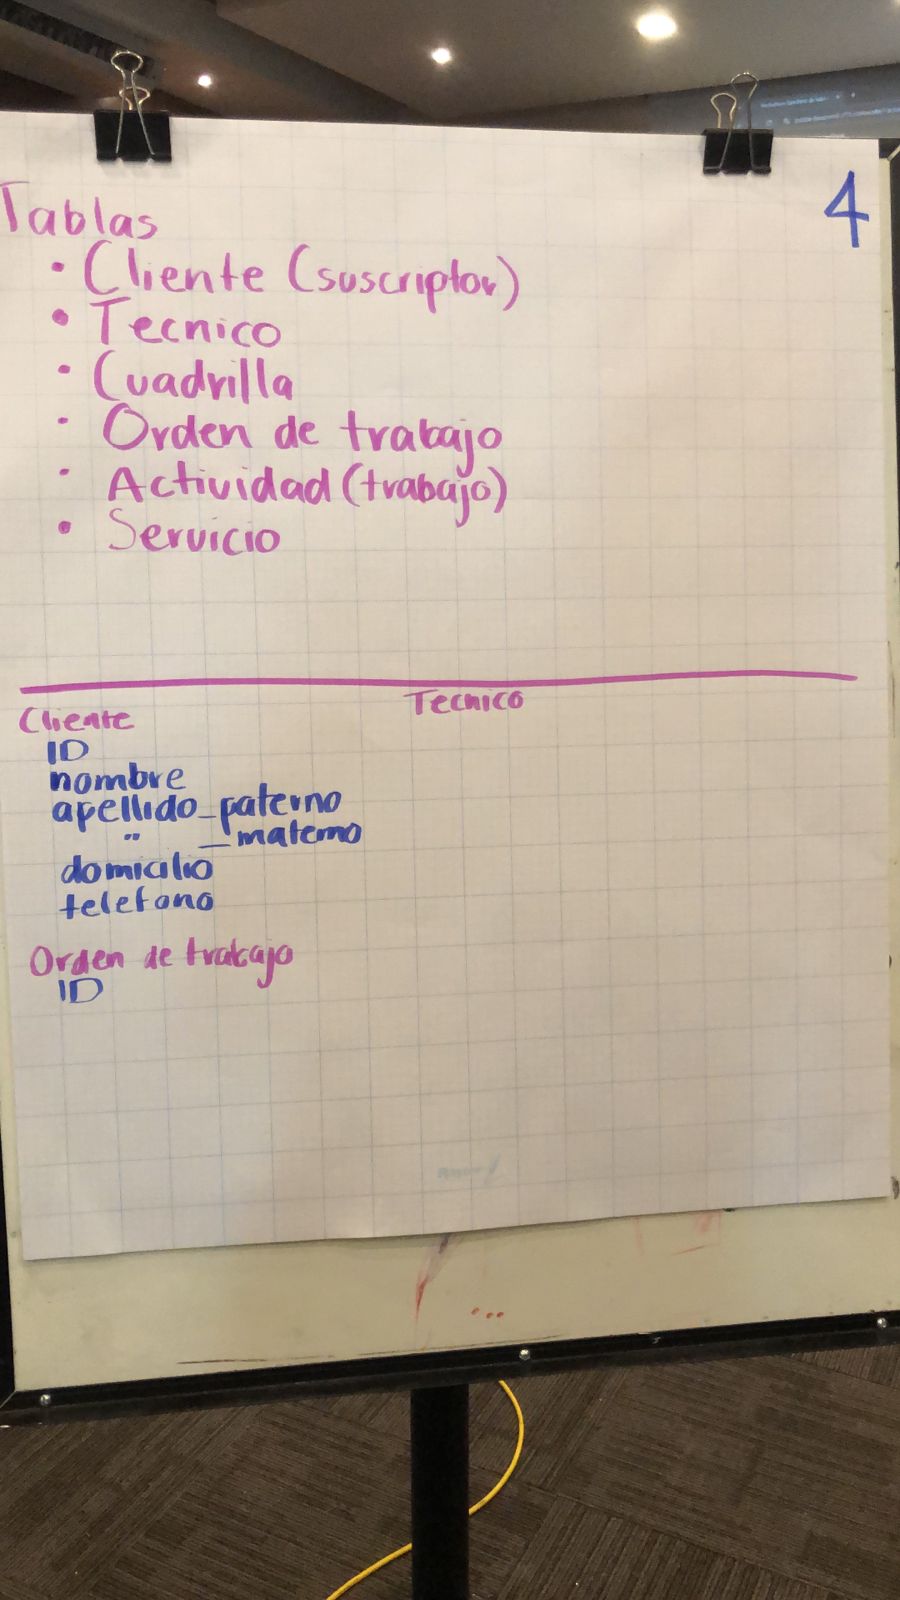 4
Tablas
• Cliente (suscriptor)
• Tecnico
• Cuadrilla
• Orden de trabajo
• Actividad (trabajo)
• Servicio
Cliente
ID
nombre
apellido_paterno
" _materno
domicilio
telefono
Orden de trabajo
ID
Tecnico